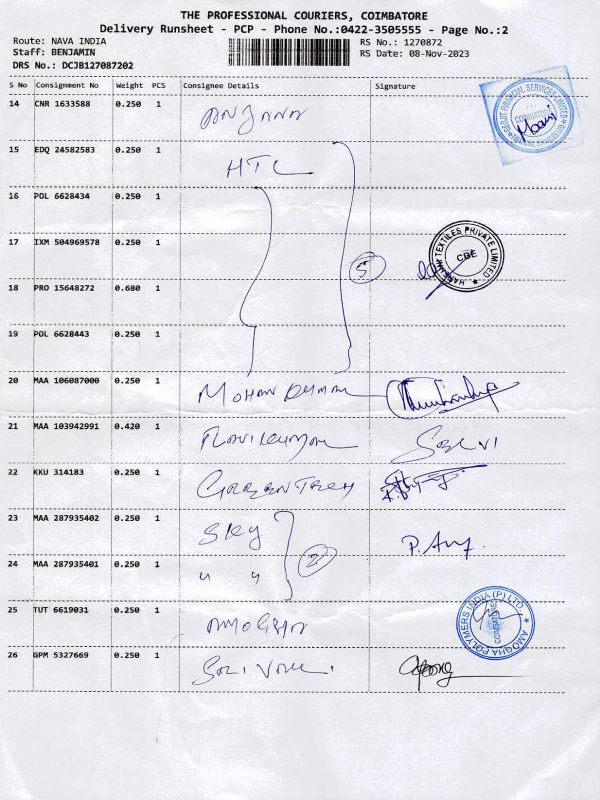 THE PROFESSIONAL COURIERS, COIMBATORE
Delivery Runsheet - PCP - Phone No.:0422-3505555 - Page No.:2
Route: NAVA INDIA RS No.: 1270872
Staff: BENJAMIN RS Date: 08-Nov-2023
DRS No.: DCJB127087202
S No Consignment No Weight PCS Consignee Details Signature
14 CNR 1633588 0.250 1 ANJANA
15 EDQ 24582583 0.250 1 HTL
16 POL 6628434 0.250 1
17 IXM 504969578 0.250 1 5 TEXTILES PRIVATE LIMITED CBE
18 PRO 15648272 0.680 1
19 POL 6628443 0.250 1
20 MAA 106087000 0.250 1 MOHAN
21 MAA 103942991 0.420 1 RAVIKUMAR SELVI
22 KKU 314183 0.250 1 GREENTECH
23 MAA 287935402 0.250 1 SKY
24 MAA 287935401 0.250 1 " " 2
25 TUT 6619031 0.250 1 AMOGHA AMOGHA POLYMERS INDIA (P) LTD. COIMBATORE
26 GPM 5327669 0.250 1